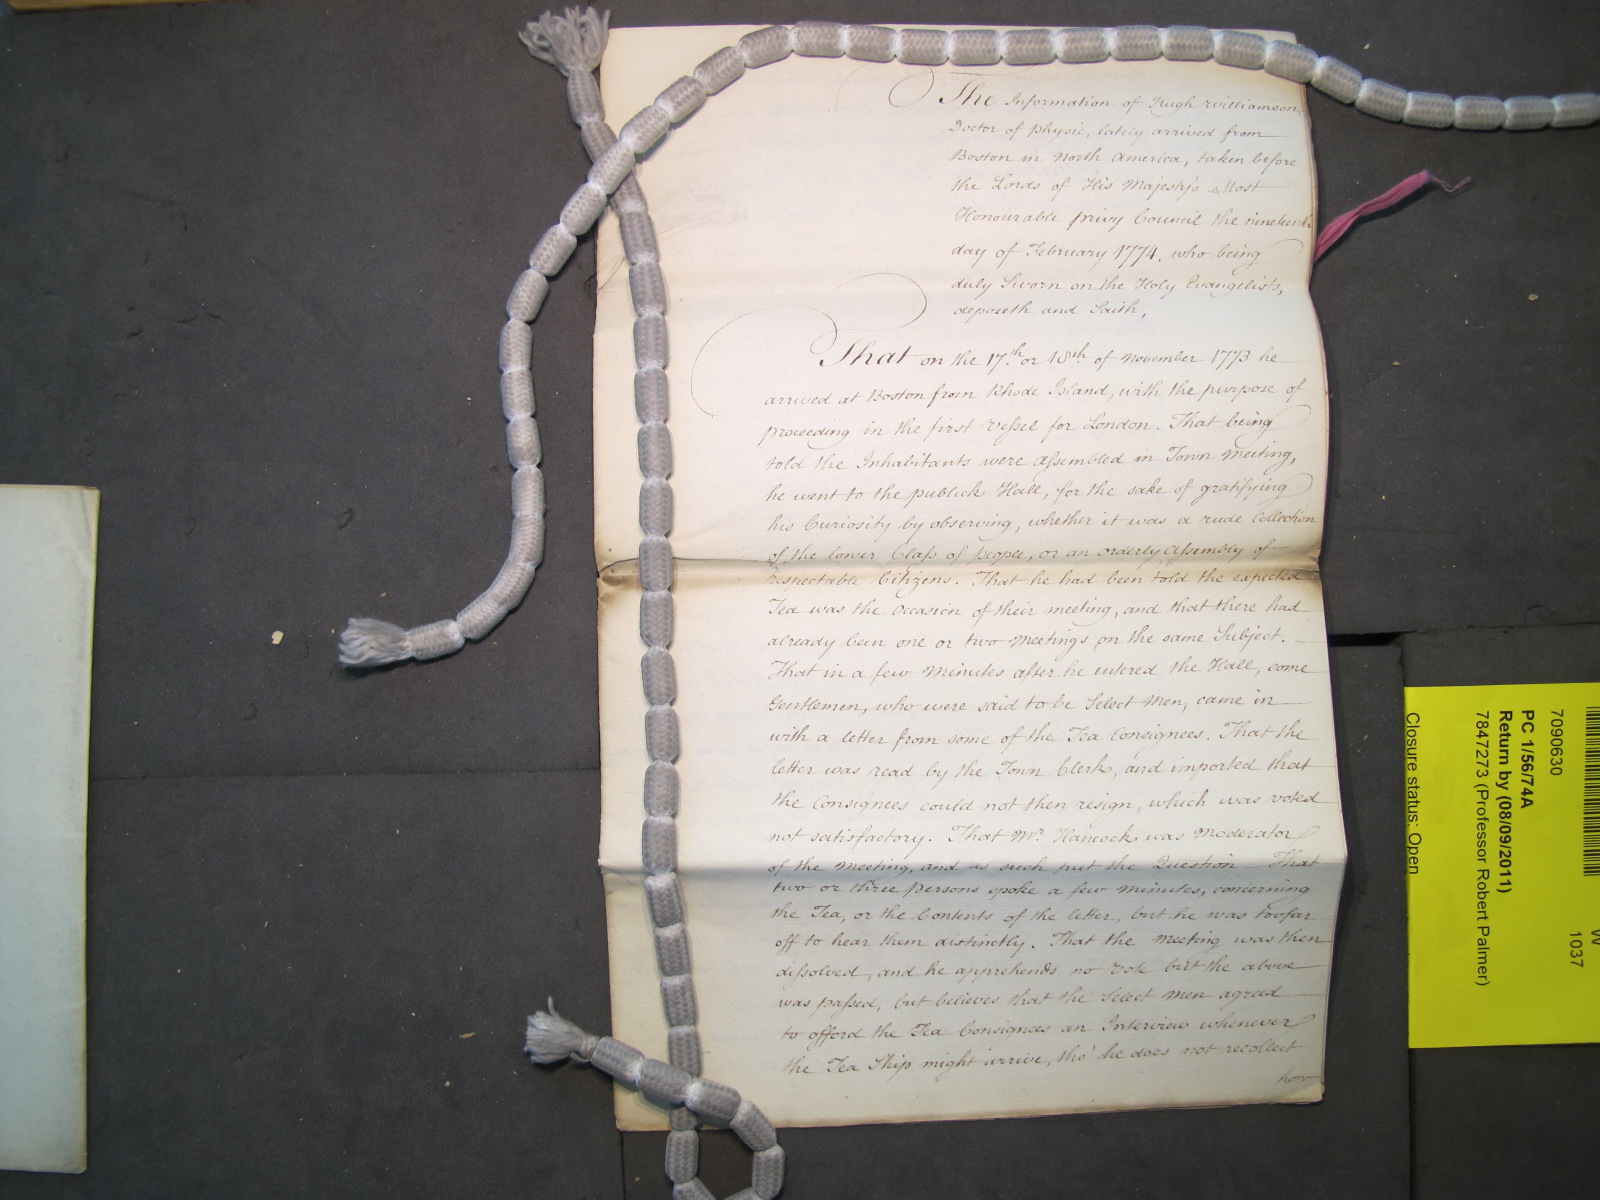 The Information of Hugh Williamson,
Doctor of physic, lately arrived from
Boston in North America, taken before
the Lords of His Majesty's Most
Honourable privy Council the nineteenth
day of February 1774. who being
duly Sworn on the Holy Evangelists,
deposeth and Saith,
That on the 17th or 18th of November 1773 he
arrived at Boston from Rhode Island, with the purpose of
proceeding in the first Vessel for London. That being
told the Inhabitants were assembled in Town Meeting,
he went to the publick Hall, for the sake of gratifying
his Curiosity by observing, whether it was a rude Collection
of the lower Class of people, or an orderly assembly of
respectable Citizens. That he had been told the expected
Tea was the Occasion of their meeting, and that there had
already been one or two Meetings on the same Subject.
That in a few Minutes after he entered the Hall, some
Gentlemen, who were said to be Select Men, came in
with a letter from some of the Tea Consignees. That the
letter was read by the Town Clerk, and imported that
the Consignees could not then resign, which was voted
not satisfactory. That Mr. Hancock was Moderator
of the Meeting, and as such put the Question – That
two or three Persons spoke a few Minutes, concerning
the Tea, or the Contents of the letter, but he was too far
off to hear them distinctly. That the Meeting was then
dissolved, and he apprehends no Vote but the above
was passed, but believes that the Select Men agreed
to afford the Tea Consignees an Interview whenever
the Tea Ship might arrive, tho' he does not recollect
how
7090630
PC 1/56/74A
Return by (08/09/2011)
7847273 (Professor Robert Palmer)
Closure status: Open
W
1037